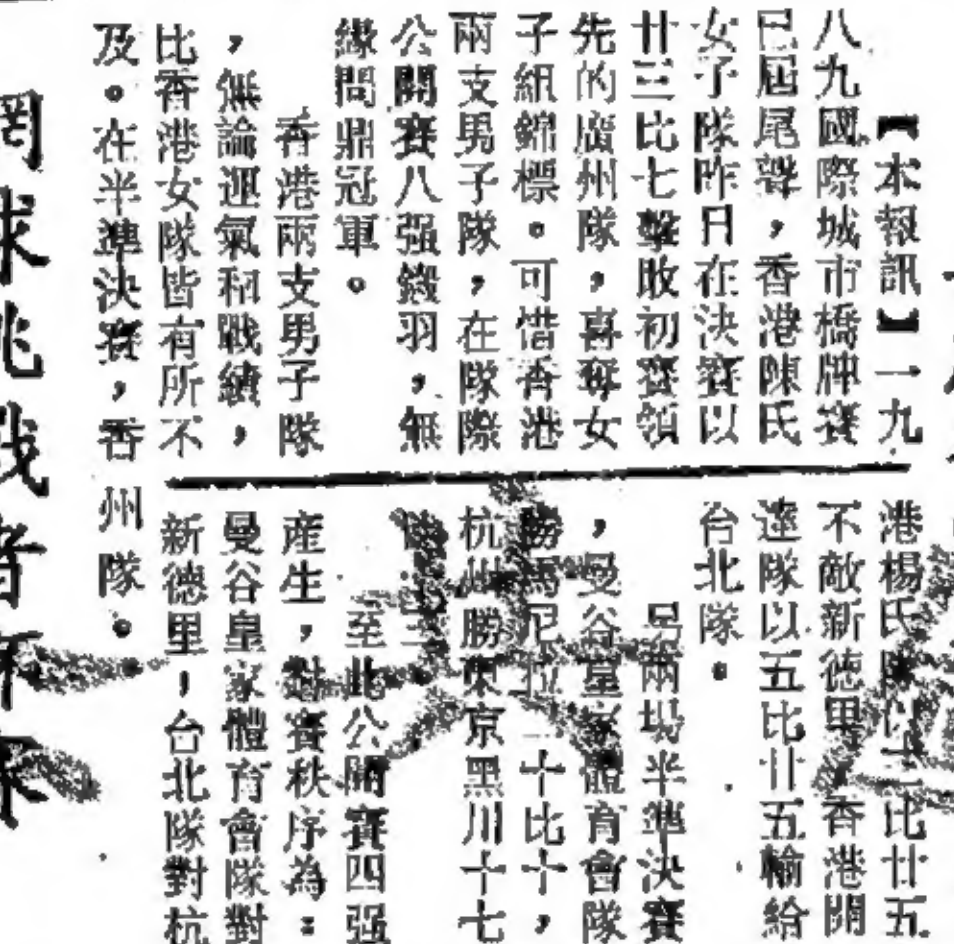 【本報訊】一九
八九國際城市橋牌賽
已屆尾聲，香港陳氏
女子隊昨日在決賽以
廿三比七擊敗初賽領
先的廣州隊，喜奪女
子組錦標。可惜香港
兩支男子隊，在隊際
公開賽八强鎩羽，無
緣問鼎冠軍。
香港兩支男子隊
，無論運氣和戰績，
比香港女隊皆有所不
及。在半準決賽，香
港楊氏隊以 比廿五
不敵新德里，香港開
達隊以五比廿五輸給
台北隊。
另兩場半準決賽
，曼谷皇家體育會隊
勝馬尼拉二十比十，
杭州勝東京黑川十七
至此公開賽四强
產生，對賽秩序為：
曼谷皇家體育會隊對
新德里，台北隊對杭
州隊。
網球挑戰者